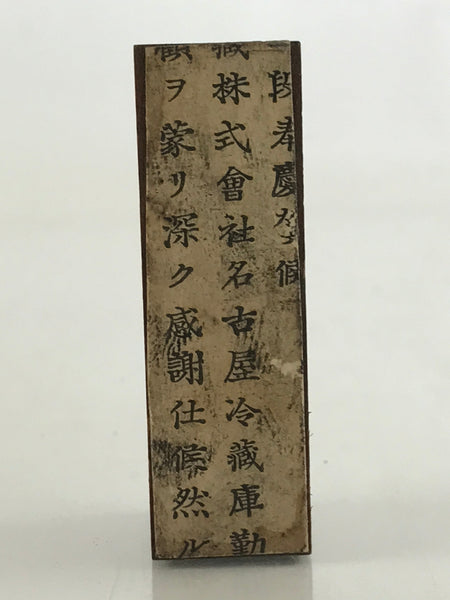 段奉慶賀候
藏株式會社名古屋冷藏庫勤
顧ヲ蒙リ深ク感謝仕候然ル